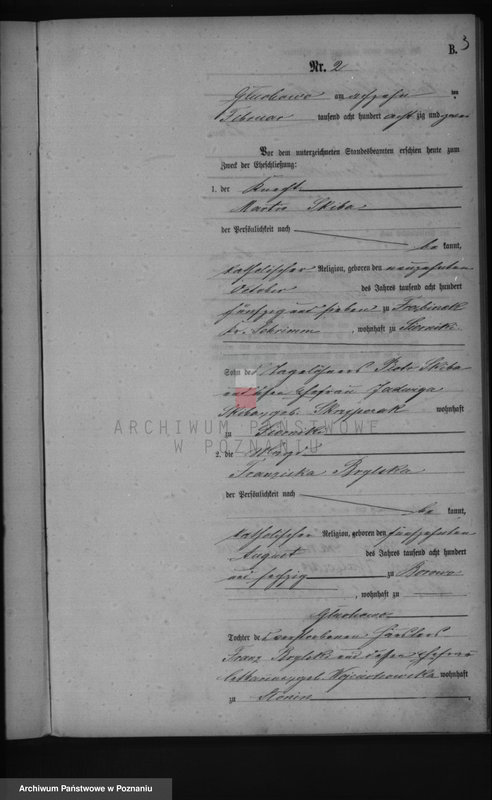 B. 3
Nr. 2
Gluchowo am achzehn ten
Februar tausend acht hundert acht zig und zwei
Vor dem unterzeichneten Standesbeamten erschien heute zum
Zweck der Eheschließung:
1. der Knecht
Martin Skiba
der Persönlichkeit nach
be kannt,
katholischer Religion, geboren den neunzehnten
October des Jahres tausend acht hundert
fünfzig und sieben zu
Kr. Schrimm, wohnhaft zu
Sohn des Tagelöhners Piotr Skiba
und Ehefrau Jadwiga
Skiba geb. wohnhaft
zu
2. die Magd
Franziska Brylska
der Persönlichkeit nach
be kannt,
katholischer Religion, geboren den fünfzehnten
August des Jahres tausend acht hundert
und sechzig zu Borowo
, wohnhaft zu
Gluchowo
Tochter des verstorbenen Häuslers
Franz Brylski und dessen Ehefrau
geb. Wojciechowska wohnhaft
zu Słonin.
ARCHIWUM PAŃSTWOWE
W POZNANIU
Archiwum Państwowe w Poznaniu